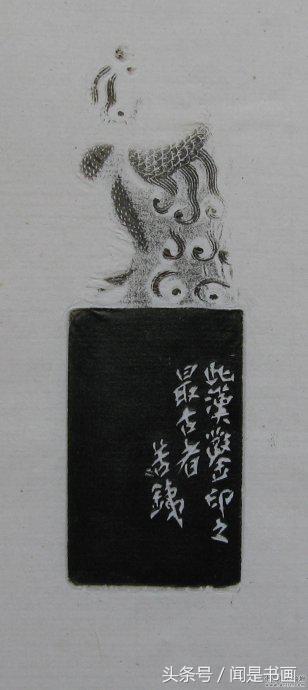 此漢鑿印之
最古者
苦鐵
头条号 / 闻是书画